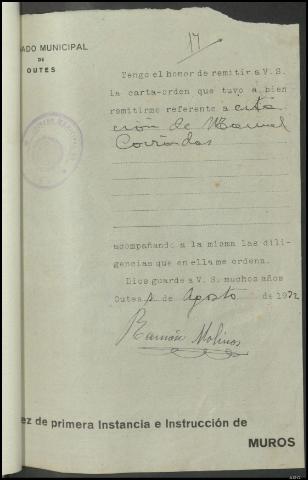 17
ADO MUNICIPAL
DE
OUTES
Tengo el honor de remitir a V. S.
la carta-orden que tuvo a bien
remitirme referente a cita
ción de Manuel
acompañando a la misma las dili-
gencias que en ella me ordena.
Dios guarde a V. S. muchos años
Outes de Agosto de 1932
Ramón Molinos
ez de primera Instancia e Instrucción de
MUROS